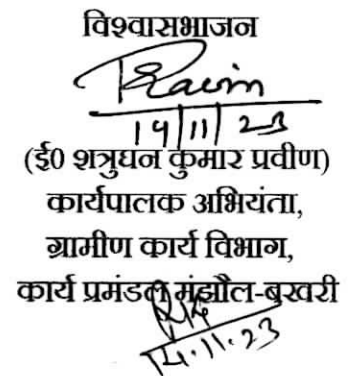 विश्वासभाजन
14/11/23
(ई0 शत्रुघन कुमार प्रवीण)
कार्यपालक अभियंता,
ग्रामीण कार्य विभाग,
कार्य प्रमंडल मंझौल-बखरी
14.11.23